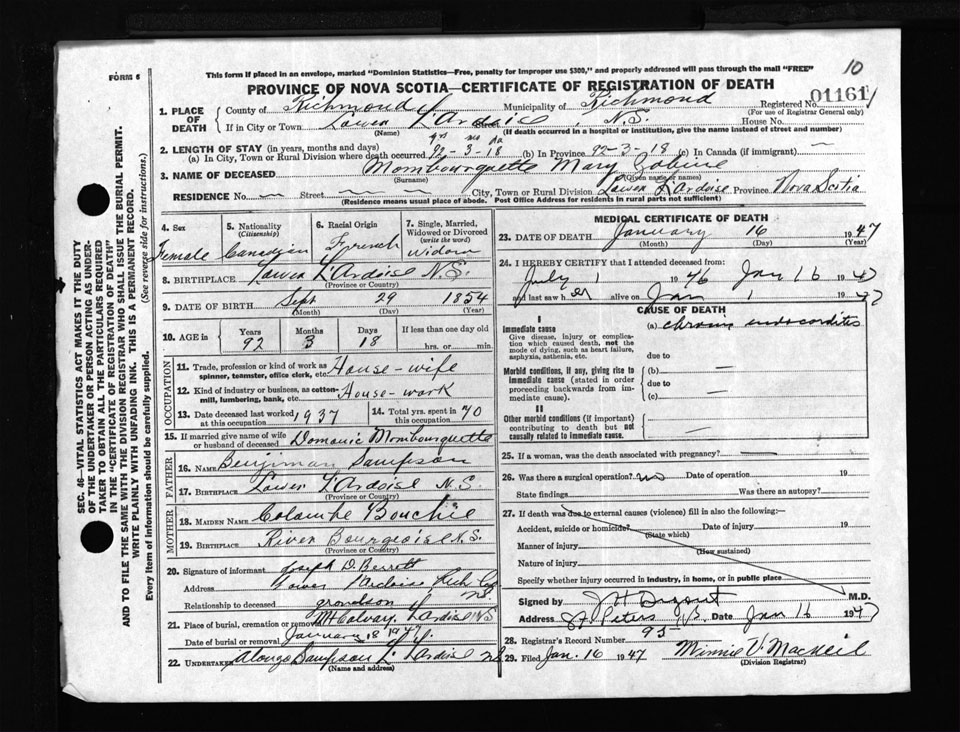 10
This form if placed in an envelope, marked "Dominion Statistics—Free, penalty for improper use $300," and properly addressed will pass through the mail "FREE"
FORM 6
PROVINCE OF NOVA SCOTIA—CERTIFICATE OF REGISTRATION OF DEATH
1. PLACE OF DEATH County of Richmond Municipality of Richmond Registered No. 01161
(For use of Registrar General only)
If in City or Town Lower L'Ardoise Street N.S. House No.
(Name) (If death occurred in a hospital or institution, give the name instead of street and number)
2. LENGTH OF STAY (in years, months and days) yrs mo da
(a) In City, Town or Rural Division where death occurred 92-3-18 (b) In Province 92-3-18 (c) In Canada (if immigrant) —
3. NAME OF DECEASED Mombourquette Mary Sabine
(Surname) (Given name or names)
RESIDENCE No. — Street — City, Town or Rural Division Lower L'Ardoise Province Nova Scotia
(Residence means usual place of abode. Post Office Address for residents in rural parts not sufficient)
SEC. 46—VITAL STATISTICS ACT MAKES IT THE DUTY
OF THE UNDERTAKER OR PERSON ACTING AS UNDER-
TAKER TO OBTAIN ALL THE PARTICULARS REQUIRED
IN THE "CERTIFICATE OF REGISTRATION OF DEATH"
AND TO FILE THE SAME WITH THE DIVISION REGISTRAR WHO SHALL ISSUE THE BURIAL PERMIT.
WRITE PLAINLY WITH UNFADING INK. THIS IS A PERMANENT RECORD.
Every item of information should be carefully supplied. (See reverse side for instructions.)
4. Sex 5. Nationality (Citizenship) 6. Racial Origin 7. Single, Married, Widowed or Divorced (write the word)
Female Canadian French Widow
8. BIRTHPLACE Lower L'Ardoise N.S.
(Province or Country)
9. DATE OF BIRTH Sept 29 1854
(Month) (Day) (Year)
10. AGE in Years Months Days If less than one day old
92 3 18 hrs. or min.
OCCUPATION
11. Trade, profession or kind of work as spinner, teamster, office clerk, etc. House-wife
12. Kind of industry or business, as cotton-mill, lumbering, bank, etc. House-work
13. Date deceased last worked at this occupation 1937 14. Total yrs. spent in this occupation 70
15. If married give name of wife or husband of deceased Domanic Mombourquette
FATHER
16. NAME Benjiman Sampson
17. BIRTHPLACE Lower L'Ardoise N.S.
(Province or Country)
MOTHER
18. MAIDEN NAME Colombe Bouchie
19. BIRTHPLACE River Bourgeoise N.S.
(Province or Country)
20. Signature of informant Joseph D. Berrott
Address Lower L'Ardoise Rich. Co. N.S.
Relationship to deceased grandson
21. Place of burial, cremation or removal Mt Calvary, L'Ardoise N.S
Date of burial or removal January 18 1947
22. UNDERTAKER Alonzo Sampson L'Ardoise N.S.
(Name and address)
MEDICAL CERTIFICATE OF DEATH
23. DATE OF DEATH January 16 1947
(Month) (Day) (Year)
24. I HEREBY CERTIFY that I attended deceased from:
July 1 1946 Jan 16 1947
and last saw her alive on Jan 1 1947
CAUSE OF DEATH
I
Immediate cause (a) chronic endocarditis
Give disease, injury or complication which caused death, not the mode of dying, such as heart failure, asphyxia, asthenia, etc. due to
Morbid conditions, if any, giving rise to immediate cause (stated in order proceeding backwards from immediate cause). (b) —
due to
(c) —
II
Other morbid conditions (if important) contributing to death but not causally related to immediate cause.
25. If a woman, was the death associated with pregnancy? —
26. Was there a surgical operation? no Date of operation 19
State findings Was there an autopsy?
27. If death was due to external causes (violence) fill in also the following:—
Accident, suicide or homicide? Date of injury 19
(State which)
Manner of injury
(How sustained)
Nature of injury
Specify whether injury occurred in industry, in home, or in public place
Signed by M.D.
Address St Peters Date Jan 16 1947
28. Registrar's Record Number 95
29. Filed Jan. 16 1947 Minnie V. MacNeil
(Division Registrar)